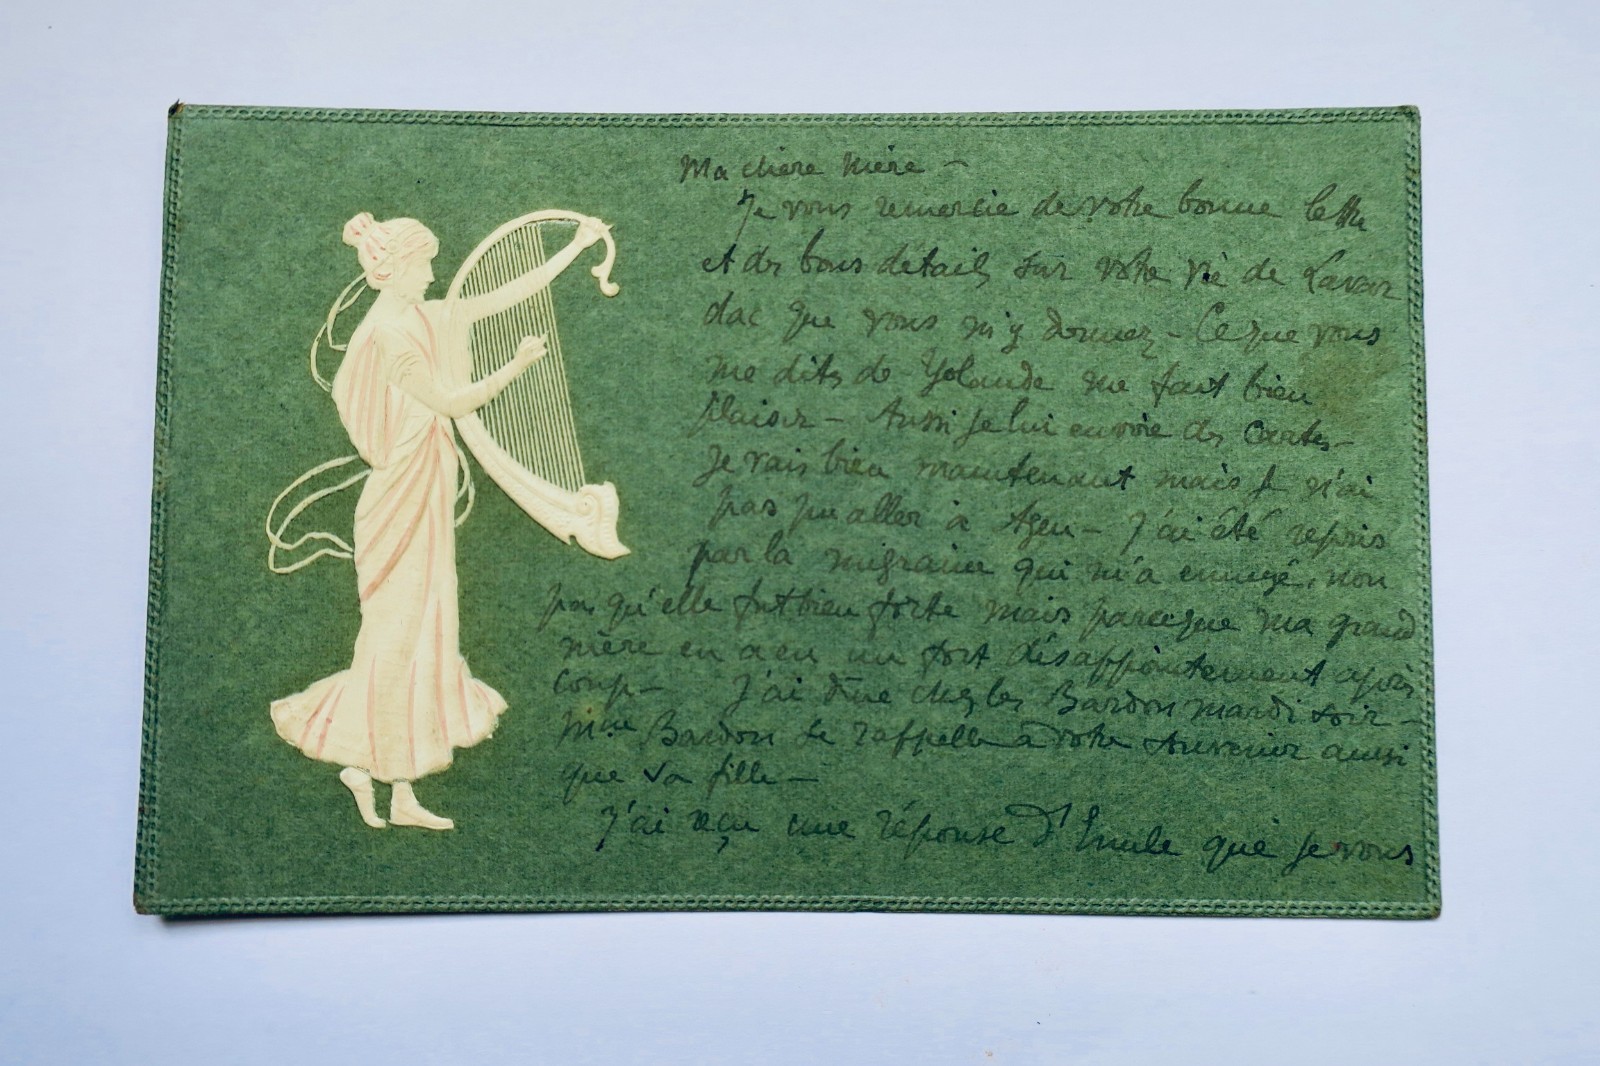 Ma chère Mère –
Je vous remercie de votre bonne lettre
et des bons détails sur votre vie de Lavar
dac que vous m'y donnez – Ce que vous
me dites de Yolande me fait bien
plaisir – Aussi je lui envoie des cartes –
Je vais bien maintenant mais je n'ai
pas pu aller à Agen – J'ai été repris
par la migraine qui m'a ennuyé, non
pas qu'elle fut bien forte mais parceque ma grand
mère en a eu un fort désappointement après
coup – J'ai dîné chez les Bardon mardi soir –
Mme Bardon se rappelle à votre souvenir aussi
que sa fille –
J'ai reçu une réponse d'Emile que je vous